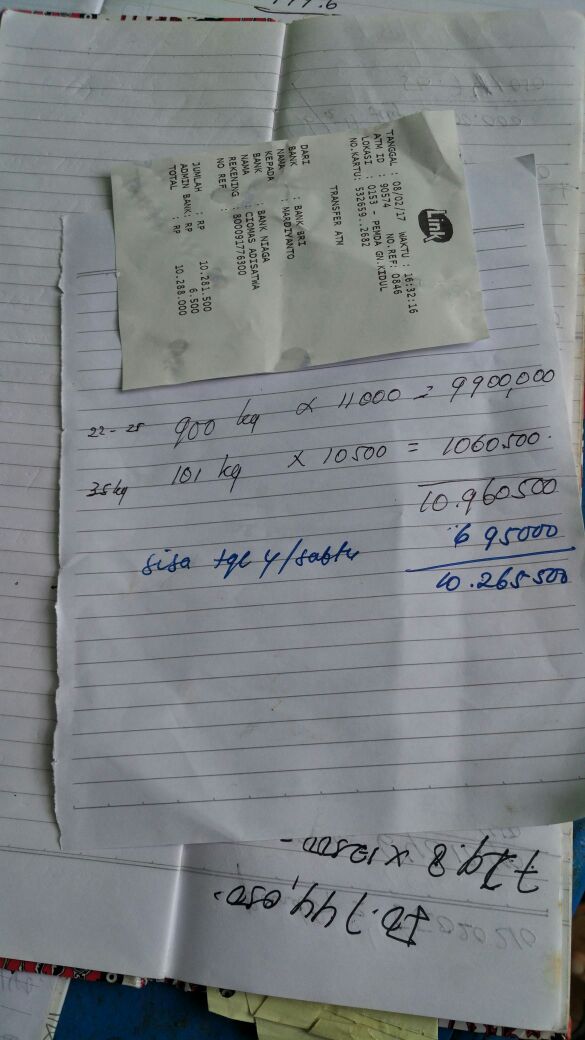 Link
TANGGAL : 08/02/17 WAKTU : 16:32:16
ATM ID : 90574 NO.REF: 0846
LOKASI : 0153 - PEMDA GN.KIDUL
NO.KARTU: 532659..2682
TRANSFER ATM
DARI
BANK : BANK BRI
NAMA : MARDIYANTO
KEPADA
BANK : BANK NIAGA
NAMA : CIOMAS ADISATWA
REKENING : 800091776300
NO REF :
JUMLAH : RP 10.281.500
ADMIN BANK: RP 6.500
TOTAL : RP 10.288.000
22 - 25 900 kg x 11000 = 9900,000
35 kg 101 kg x 10500 = 1060500.
10.960500
695000
sisa tgl 4/sabtu 10.265.500
729,8 x 12500